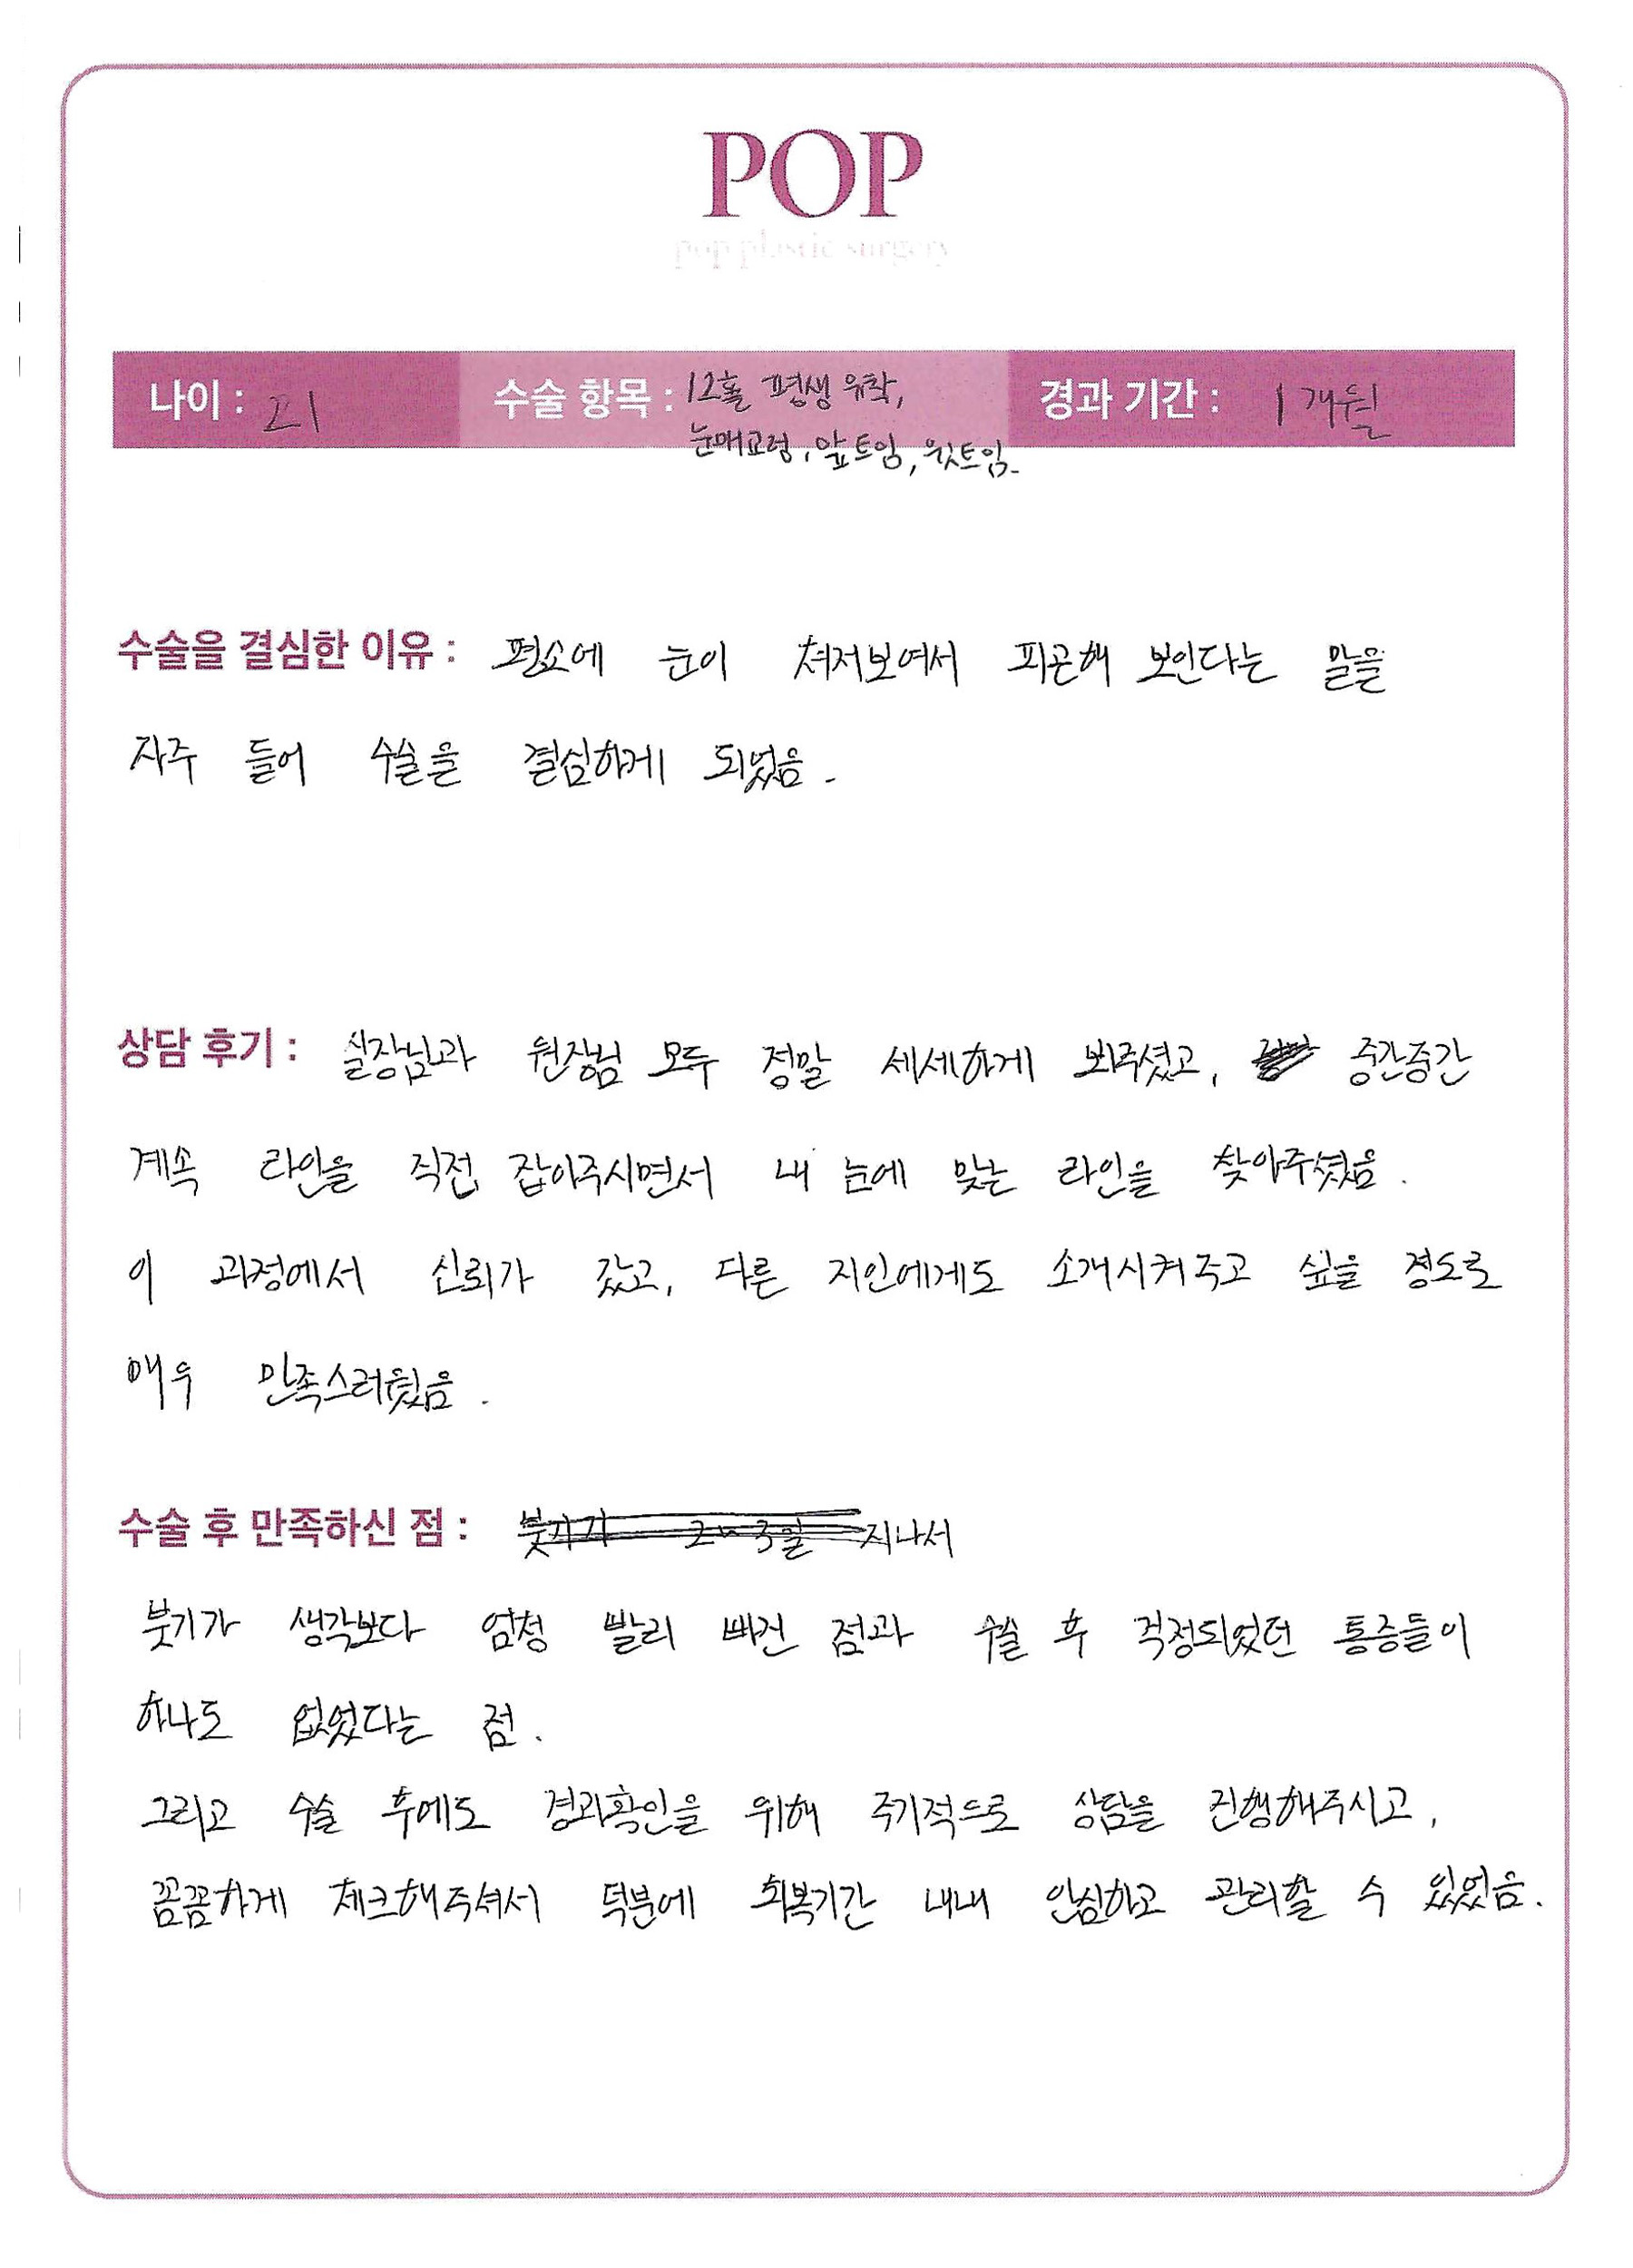 POP
pop plastic surgery
나이 : 21 수술 항목 : 12홀 평생 유착, 경과 기간 : 1개월
눈매교정, 앞트임, 윗트임.
수술을 결심한 이유 : 평소에 눈이 쳐저보여서 피곤해 보인다는 말을
자주 들어 수술을 결심하게 되었음.
상담 후기 : 실장님과 원장님 모두 정말 세세하게 봐주셨고, 중간중간
계속 라인을 직접 잡아주시면서 내 눈에 맞는 라인을 찾아주셨음.
이 과정에서 신뢰가 갔고, 다른 지인에게도 소개시켜주고 싶을 정도로
매우 만족스러웠음.
수술 후 만족하신 점 : 붓기가 2~3일 지나서
붓기가 생각보다 엄청 빨리 빠진 점과 수술 후 걱정되었던 통증들이
하나도 없었다는 점.
그리고 수술 후에도 경과확인을 위해 주기적으로 상담을 진행해주시고,
꼼꼼하게 체크해주셔서 덕분에 회복기간 내내 안심하고 관리할 수 있었음.